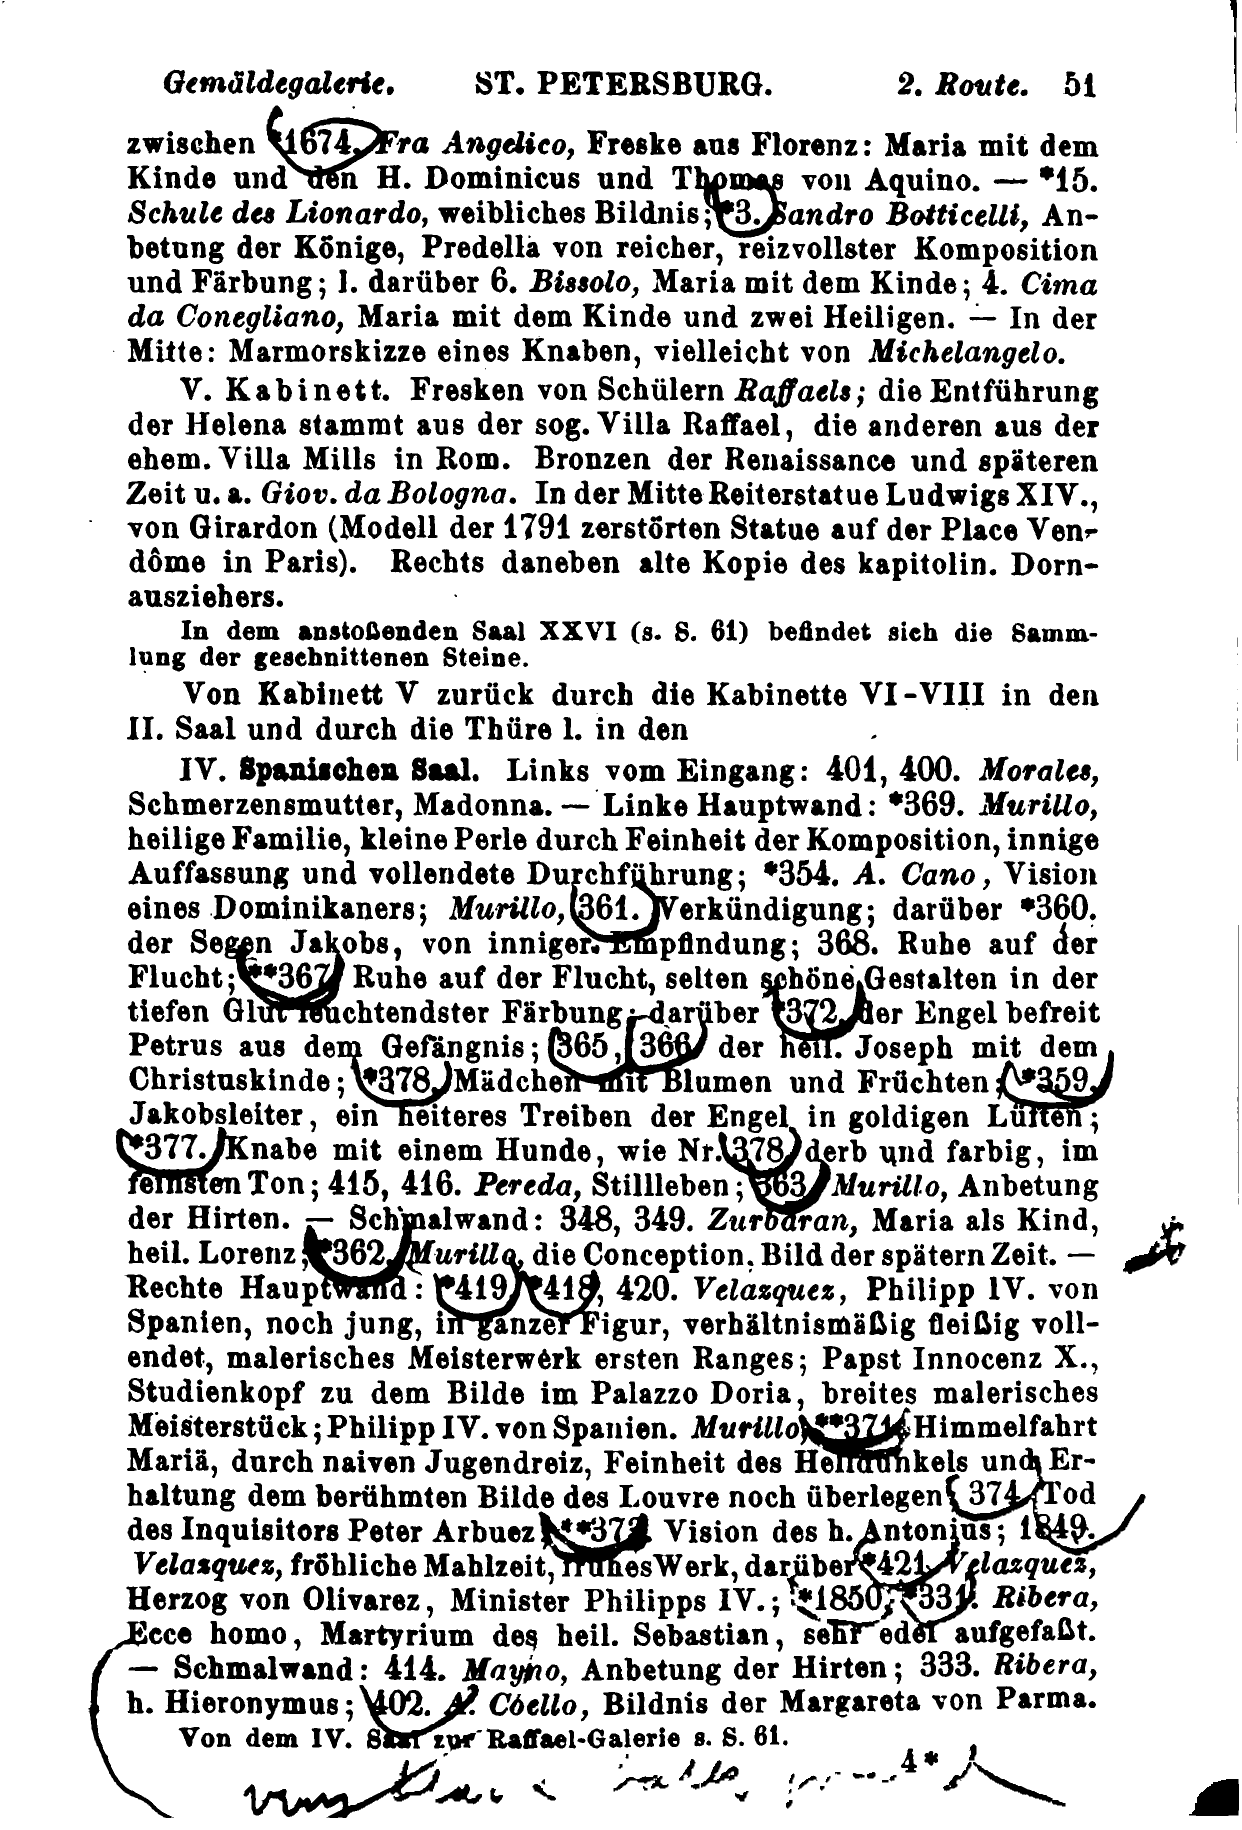 Gemäldegalerie. ST. PETERSBURG. 2. Route. 51
zwischen *1674. Fra Angelico, Freske aus Florenz: Maria mit dem
Kinde und den H. Dominicus und Thomas von Aquino. — *15.
Schule des Lionardo, weibliches Bildnis; *3. Sandro Botticelli, An-
betung der Könige, Predella von reicher, reizvollster Komposition
und Färbung; l. darüber 6. Bissolo, Maria mit dem Kinde; 4. Cima
da Conegliano, Maria mit dem Kinde und zwei Heiligen. — In der
Mitte: Marmorskizze eines Knaben, vielleicht von Michelangelo.
V. Kabinett. Fresken von Schülern Raffaels; die Entführung
der Helena stammt aus der sog. Villa Raffael, die anderen aus der
ehem. Villa Mills in Rom. Bronzen der Renaissance und späteren
Zeit u. a. Giov. da Bologna. In der Mitte Reiterstatue Ludwigs XIV.,
von Girardon (Modell der 1791 zerstörten Statue auf der Place Ven-
dôme in Paris). Rechts daneben alte Kopie des kapitolin. Dorn-
ausziehers.
In dem anstoßenden Saal XXVI (s. S. 61) befindet sich die Samm-
lung der geschnittenen Steine.
Von Kabinett V zurück durch die Kabinette VI-VIII in den
II. Saal und durch die Thüre l. in den
IV. Spanischen Saal. Links vom Eingang: 401, 400. Morales,
Schmerzensmutter, Madonna. — Linke Hauptwand: *369. Murillo,
heilige Familie, kleine Perle durch Feinheit der Komposition, innige
Auffassung und vollendete Durchführung; *354. A. Cano, Vision
eines Dominikaners; Murillo, 361. Verkündigung; darüber *360.
der Segen Jakobs, von inniger Empfindung; 368. Ruhe auf der
Flucht; **367. Ruhe auf der Flucht, selten schöne Gestalten in der
tiefen Glut leuchtendster Färbung; darüber *372. der Engel befreit
Petrus aus dem Gefängnis; 365, 366. der heil. Joseph mit dem
Christuskinde; *378. Mädchen mit Blumen und Früchten; *359.
Jakobsleiter, ein heiteres Treiben der Engel in goldigen Lüften;
*377. Knabe mit einem Hunde, wie Nr. 378 derb und farbig, im
feinsten Ton; 415, 416. Pereda, Stillleben; 363. Murillo, Anbetung
der Hirten. — Schmalwand: 348, 349. Zurbaran, Maria als Kind,
heil. Lorenz; *362. Murillo, die Conception, Bild der spätern Zeit. —
Rechte Hauptwand: *419, *418, 420. Velazquez, Philipp IV. von
Spanien, noch jung, in ganzer Figur, verhältnismäßig fleißig voll-
endet, malerisches Meisterwerk ersten Ranges; Papst Innocenz X.,
Studienkopf zu dem Bilde im Palazzo Doria, breites malerisches
Meisterstück; Philipp IV. von Spanien. Murillo, **371. Himmelfahrt
Mariä, durch naiven Jugendreiz, Feinheit des Helldunkels und Er-
haltung dem berühmten Bilde des Louvre noch überlegen; 374. Tod
des Inquisitors Peter Arbuez; **373. Vision des h. Antonius; 1849.
Velazquez, fröhliche Mahlzeit, frühes Werk, darüber *421. Velazquez,
Herzog von Olivarez, Minister Philipps IV.; *1850, *331. Ribera,
Ecce homo, Martyrium des heil. Sebastian, sehr edel aufgefaßt.
— Schmalwand: 414. Mayno, Anbetung der Hirten; 333. Ribera,
h. Hieronymus; 402. A. Cöello, Bildnis der Margareta von Parma.
Von dem IV. Saal zur Raffael-Galerie s. S. 61.
4*
very